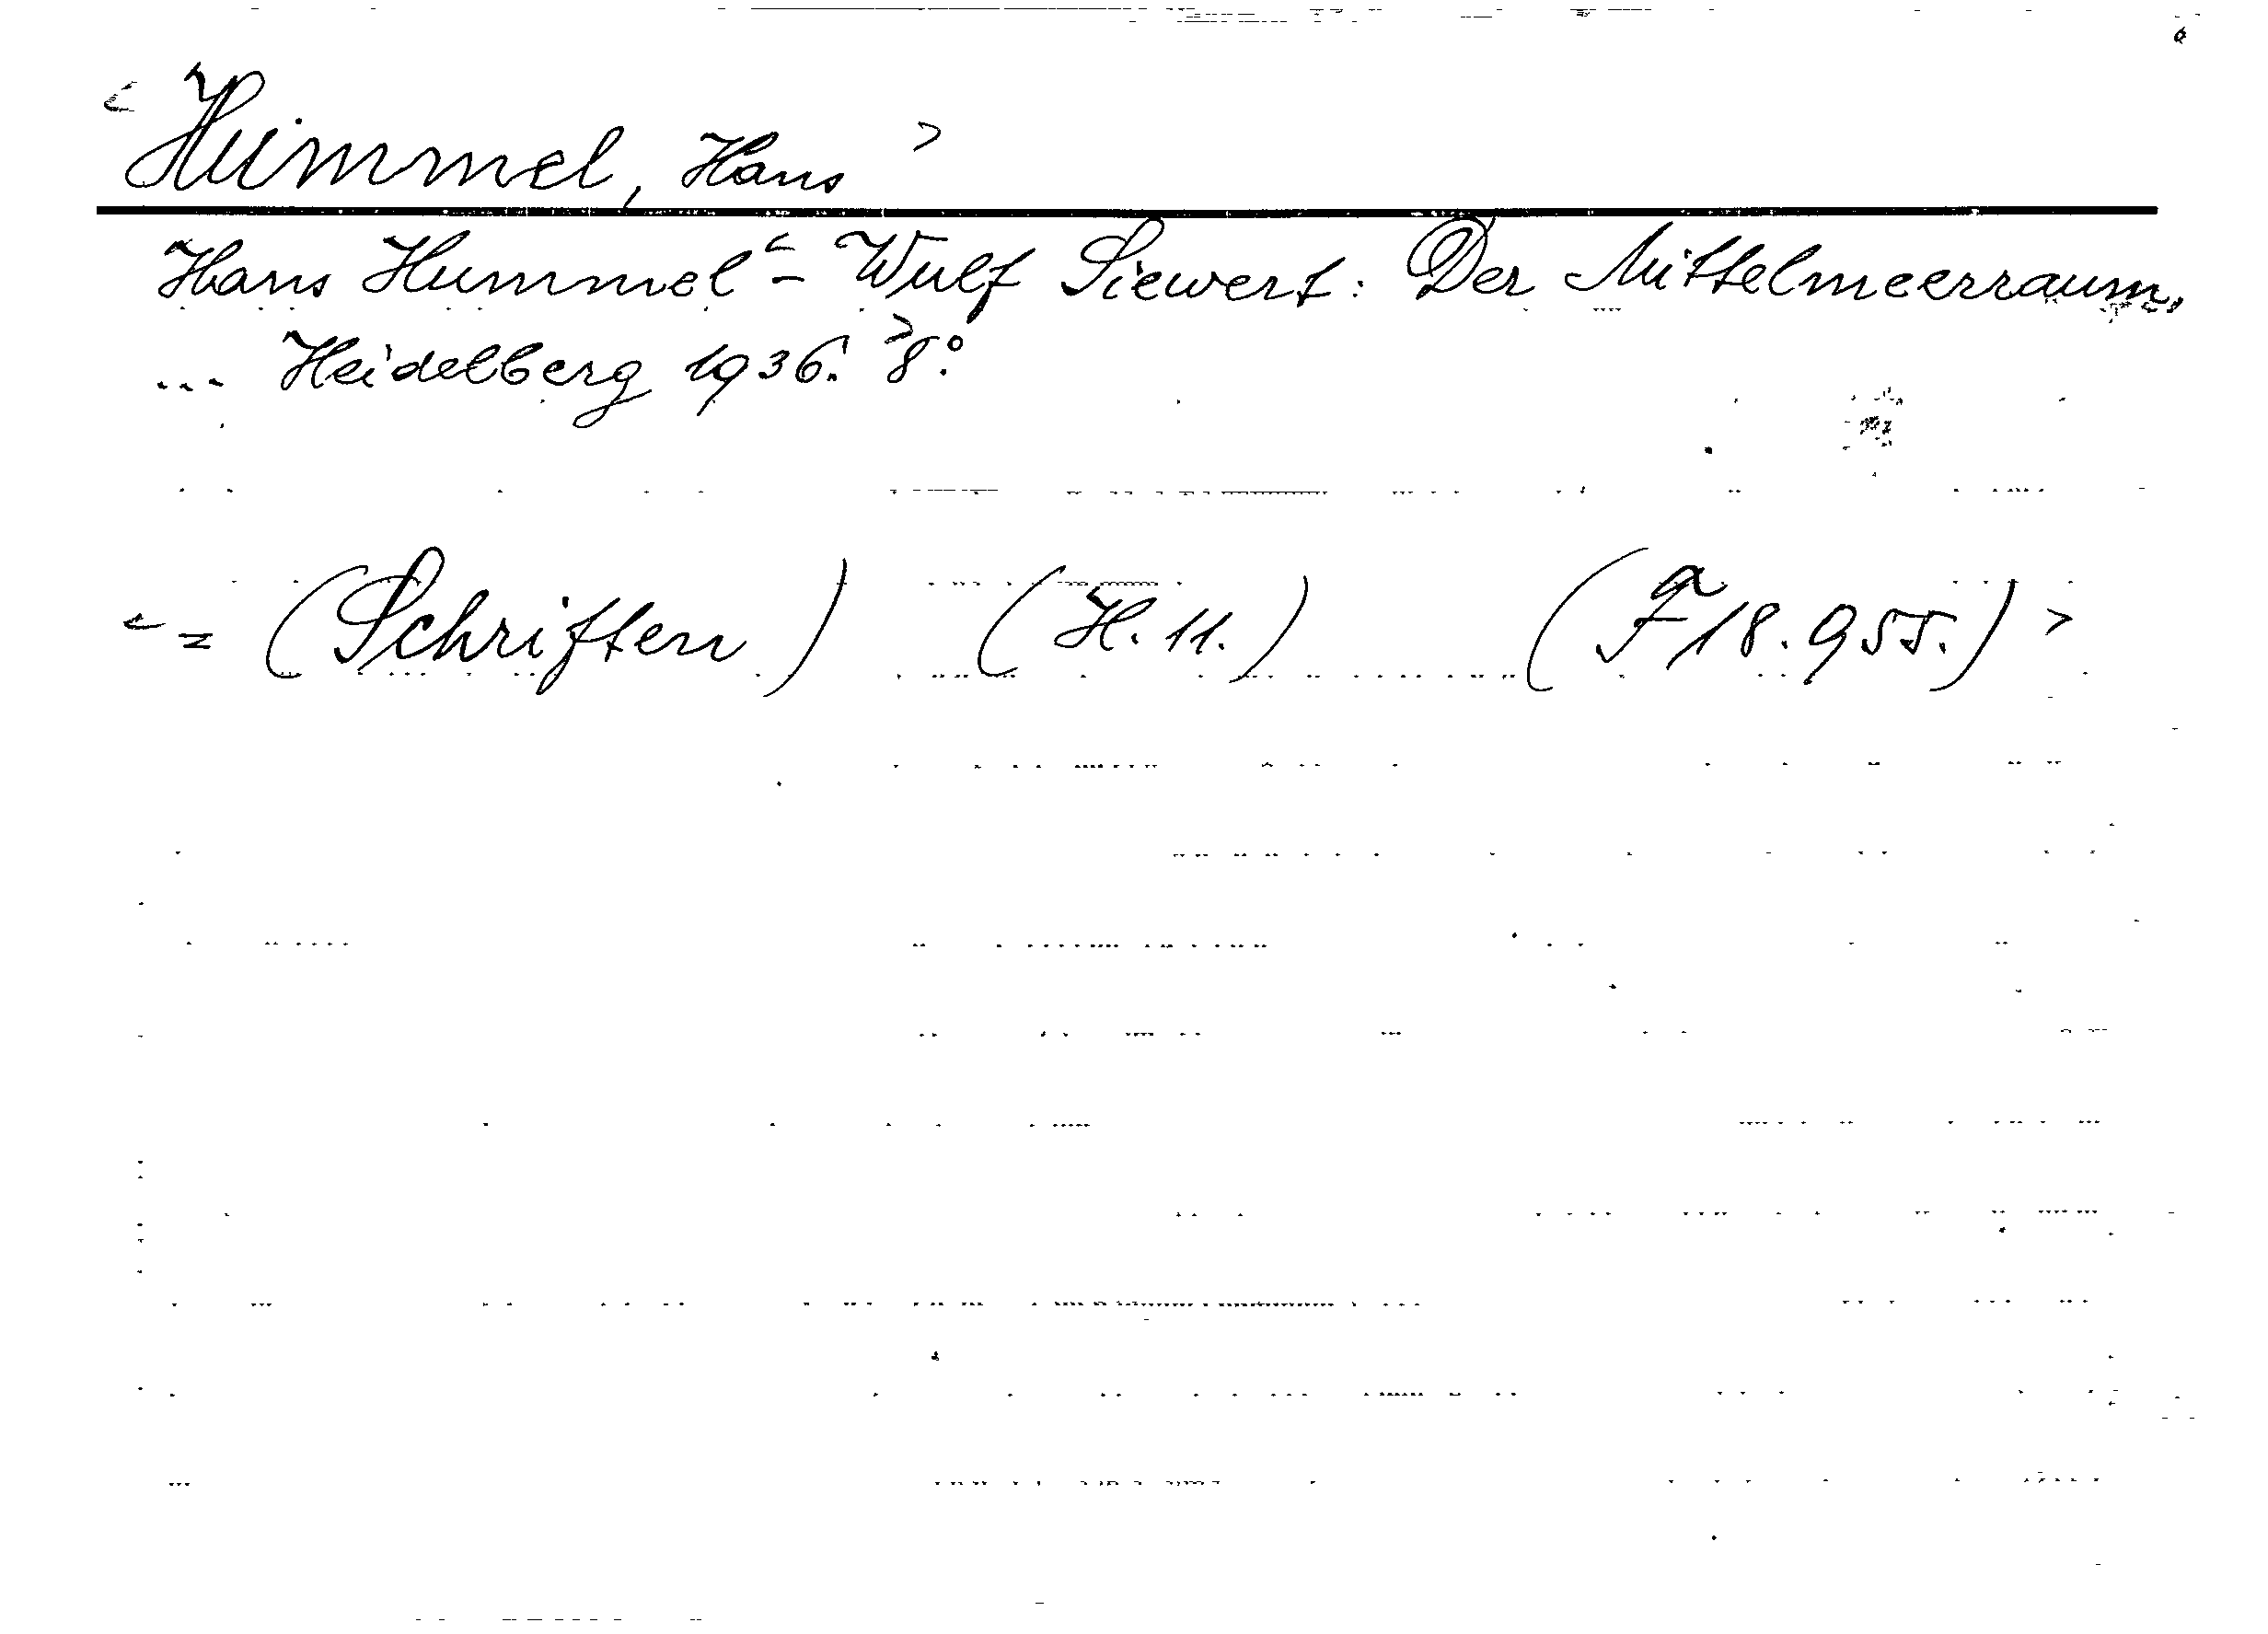 < Hummel, Hans >
Hans Hummel < - Wulf Siewert: Der Mittelmeerraum.
... Heidelberg 1936. > 8°.
< = (Schriften) (H. 11.) (F 18.955.) >